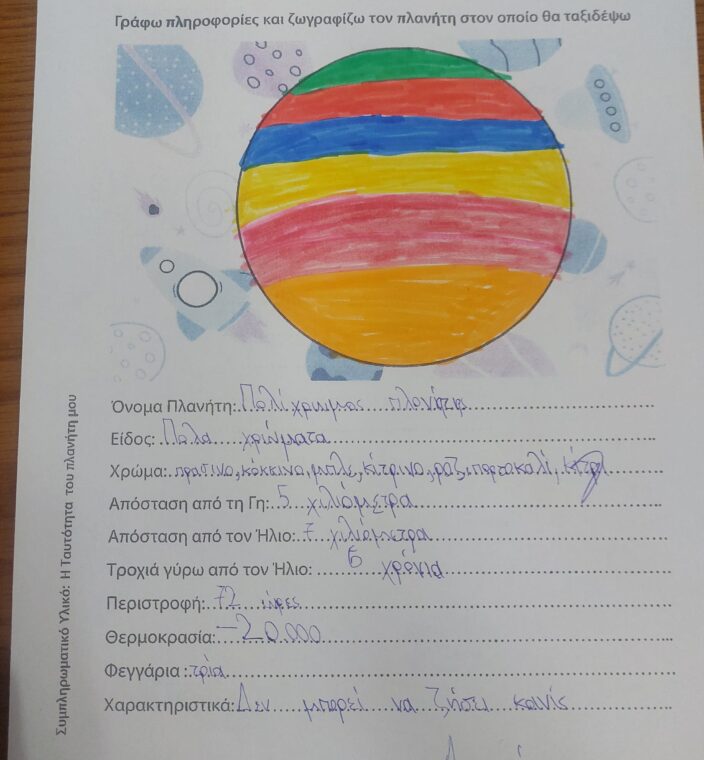 Γράφω πληροφορίες και ζωγραφίζω τον πλανήτη στον οποίο θα ταξιδέψω
Όνομα Πλανήτη: Πολίχρωμος πλανήτης
Είδος: Πολα χρώματα
Χρώμα: πρασινο, κόκεινο, μπλε, κίτρινο, ροζ, πορτοκαλί,
Απόσταση από τη Γη: 5 χιλιόμετρα
Απόσταση από τον Ήλιο: 7 χιλιόμετρα
Τροχιά γύρω από τον Ήλιο: 6 χρόνια
Περιστροφή: 72 ώρες
Θερμοκρασία: -20.000
Φεγγάρια: τρία
Χαρακτηριστικά: Δεν μπορεί να ζήσει κανίς
Συμπληρωματικό Υλικό: Η Ταυτότητα του πλανήτη μου